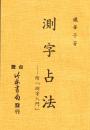 鐵筆子著
測字占法
附「測字入門」
竹林書局
發行